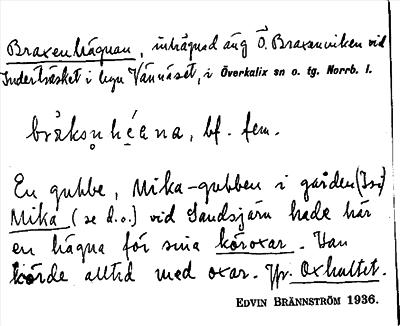 Braxenhägnan, inhägnad äng Ö. Braxenviken vid
Inderträsket i byn Vännäset, i Överkalix sn o. tg. Norrb. l.
bråksn hégna, bf. fem.
En gubbe, Mika-gubben i gården (Isi)
Mika (se d.o.) vid Sandsjärn hade här
en hägna för sina köroxar. Han
körde alltid med oxar. Jfr. Oxhultet.
EDVIN BRÄNNSTRÖM 1936.